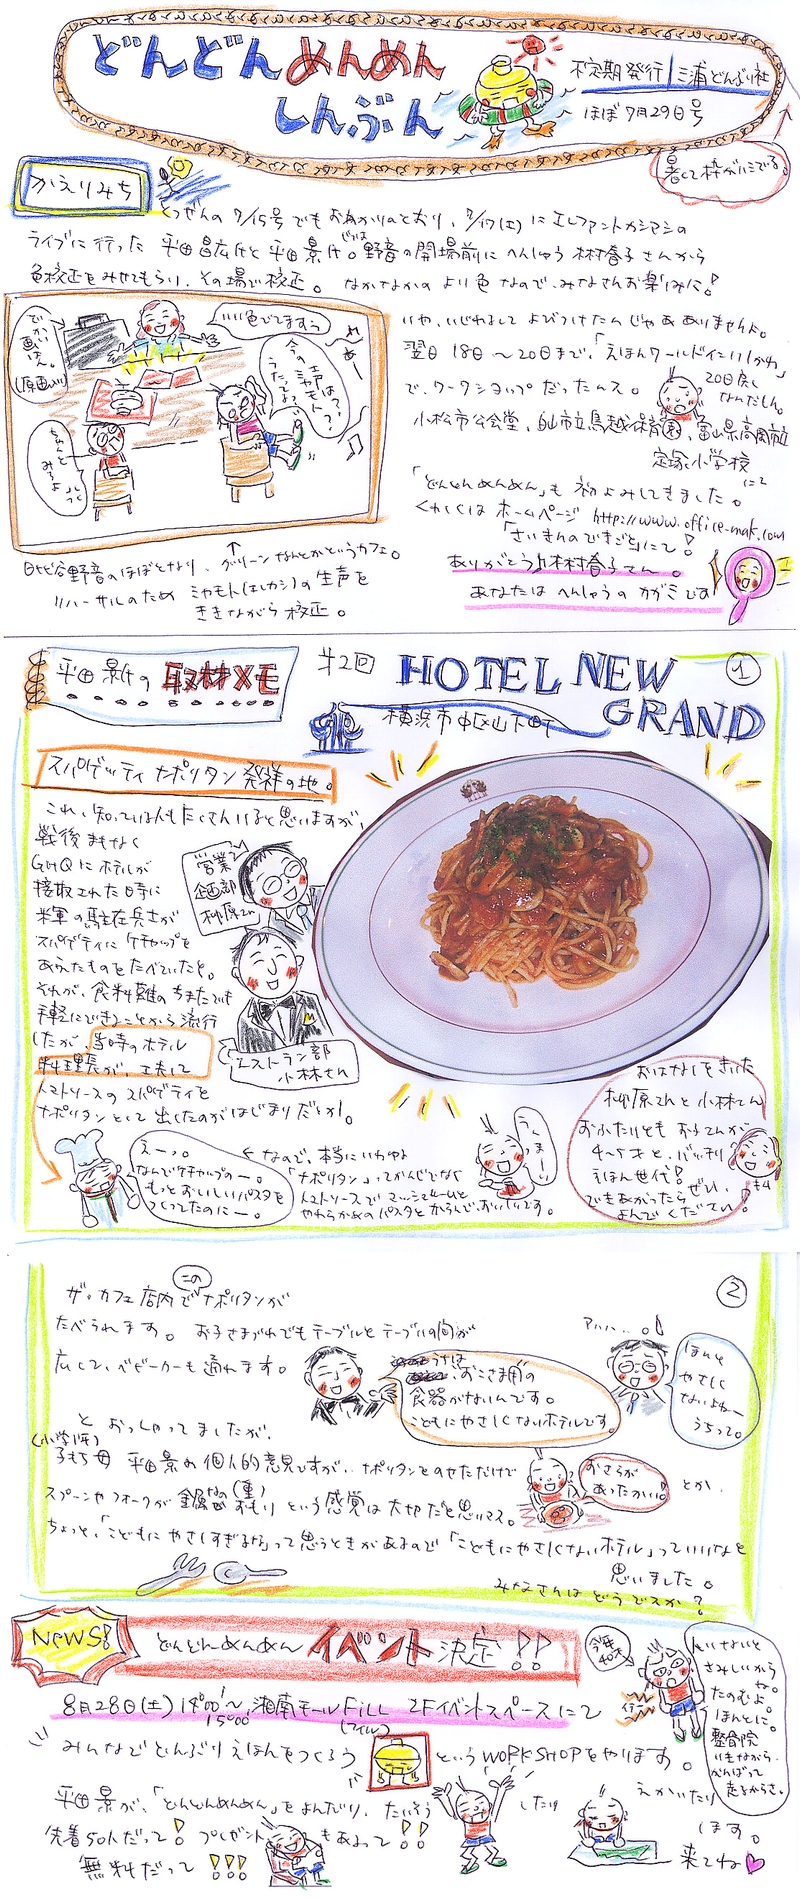 どんどんめんめん
しんぶん
不定期発行 三浦どんぶり社
ほぼ7月29日号
暑くて枠がハミでる。
かえりみち
とつぜんの7/15号でもおわかりのとおり、7/17(土)にエレファントカシマシの
ライブに行った平田昌広と平田景は。野音の開場前にへんしゅう 木村春子さんから
色校正をみせてもらい、その場で校正。なかなかのより色なので、みなさんお楽しみに!
でかい画いばん。
(原画入り)
いい色でてますぅ
今の声は?ミヤモト?
うたってよ?
ちゃんとみろよ
いや、いじわるしてよびつけたんじゃあありませんよ。
翌日18日〜20日まで、「えほんワールドinいしかわ」
で、ワークショップだったんス。
20日戻りなんだしん。
小松市公会堂、白山市立鳥越保育園、富山県高岡市立
定塚小学校
にて
「どんどんめんめん」も初よみしてきました。
くわしくはホームページ http://www.office-mak.com
「さいきんのできごと」にて!
ありがとう木村春子さん。
あなたはへんしゅうのカガミです
日比谷野音のほぼとなり、グリーンなんとかというカフェ。
リハーサルのためミヤモト(エレカシ)の生声を
ききながら校正。
平田景の取材メモ
第2回 HOTEL NEW
GRAND
①
横浜市中区山下町
スパゲッティナポリタン発祥の地。
これ、知っている人もたくさんいると思いますが、
戦後まもなく
GHQにホテルが
接収された時に
米軍の駐在兵士が
スパゲティにケチャップを
あえたものをたべていたと。
それが、食料難のちまたでも
手軽にできることから流行
したが、当時のホテル
料理長が、工夫して
トマトソースのスパゲティを
ナポリタンとして出したのがはじまりだとか。
営業企画部
柳原さん
レストラン部
小林さん
えーっ。
なんでケチャップのー。
もっとおいしいパスタを
つくってたのにー。
← なので、本当にいわゆる
「ナポリタン」ってかんじでなく
トマトソースでマッシュルームと
やわらかめのパスタとからんで、おいしいです。
うんまーい
おはなしをきいた
柳原さんと小林さん
おふたりともお子さんが
4〜5才と、バッチリ
えほん世代!
ぜひ、
できあがったら
よんでください!
②
ザ・カフェ店内でこのナポリタンが
たべられます。お子さまづれでもテーブルとテーブルの間が
広くて、ベビーカーも通れます。
うちは、おこさま用の
食器がないんです。
こどもにやさしくないホテルです。
アハハ...。
ほんとやさしくないよねーうちって。
とおっしゃってましたが、
(小学1年)
子もち母 平田景の個人的意見ですが、ナポリタンをのせただけで
おさらがあったかい!
とか、
スプーンやフォークが銀なのおもり(重)という感覚は大切だと思いマス。
ちょっと、「こどもにやさしすぎるな」って思うときがあるので「こどもにやさしくないホテル」っていいなと
思いました。
みなさんはどうですか?
NEWS!
どんどんめんめん イベント決定!!
8月28日(土)14:00〜15:00 湘南モールFiLL(フィル) 2Fイベントスペースにて
みんなでどんぶりえほんをつくろうというWORKSHOPをやります。
今年40才
イテー
人いないと
さみしいからサ。
たのむよ。
ほんとに。
整骨院
いきながら、
がんばって
走るからさ。
平田景が、「どんどんめんめん」をよんだり、たいそうしたり えかいたり
します。
先着50人だって! プレゼントもあるって!!
無料だって!!!
来てね